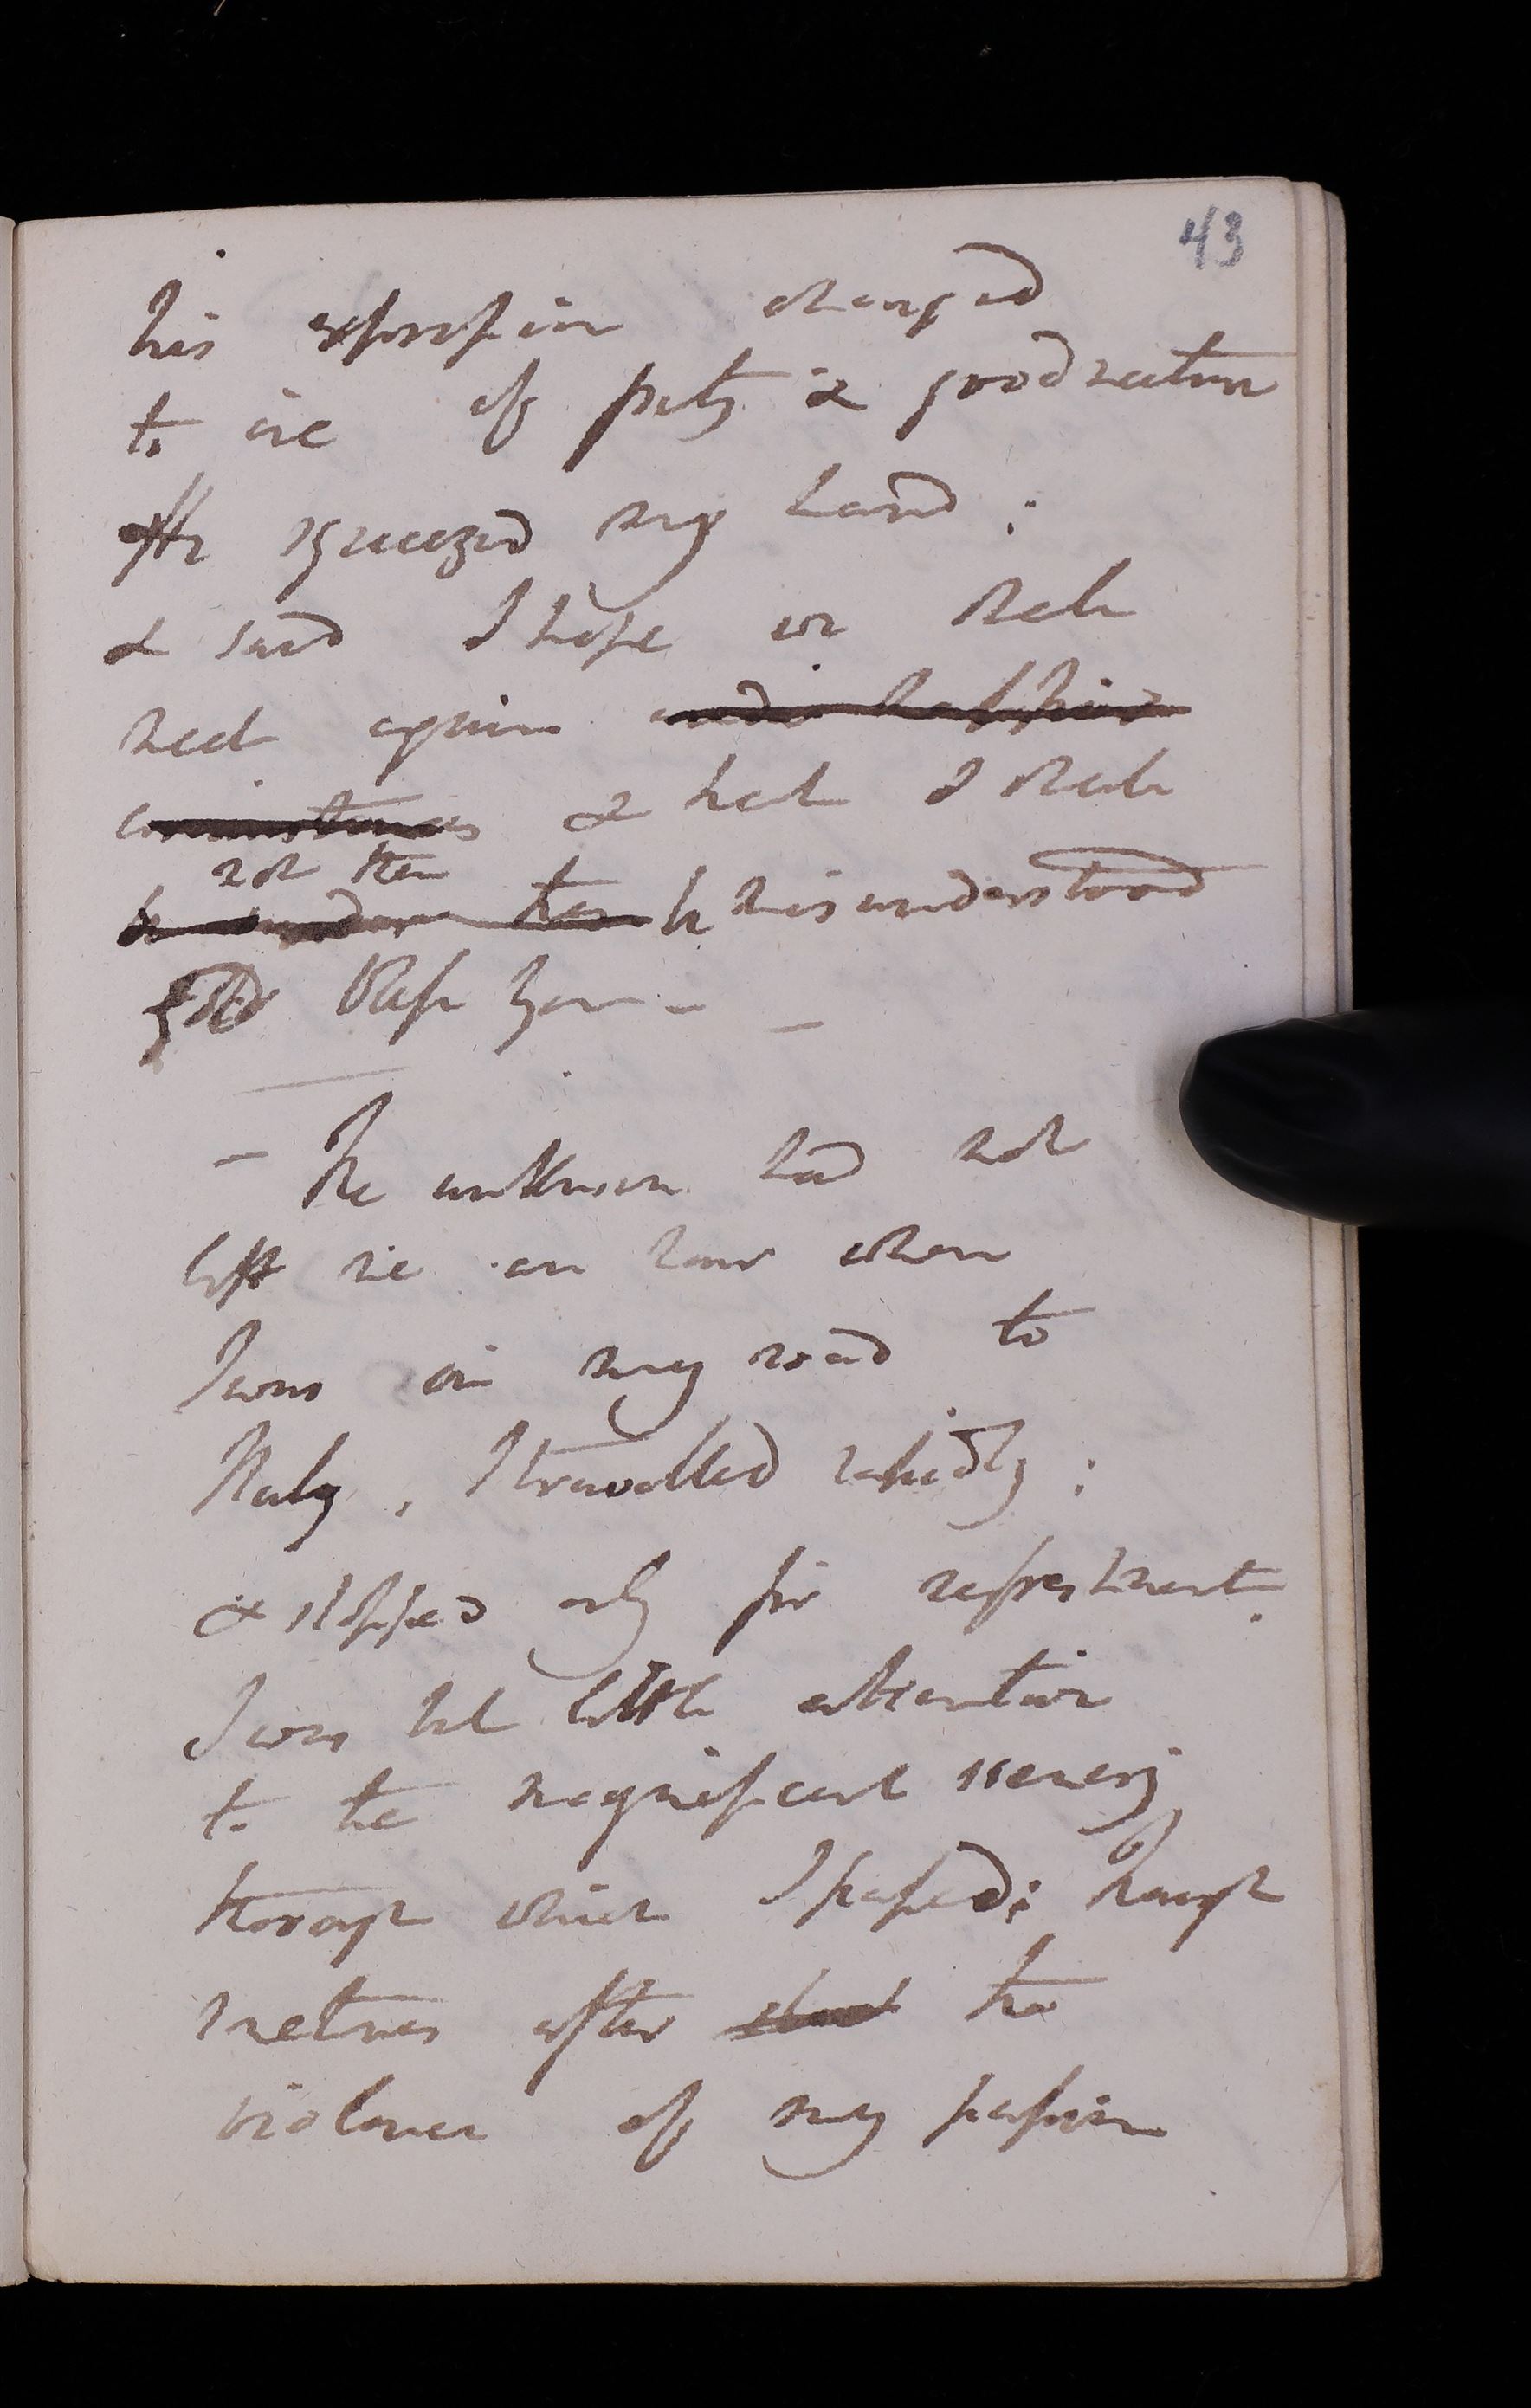 43
his expression changed
to one of pity & good nature
He squeezed my hand ;
& said I hope we shall
meet again under happier
circumstances & that I shall
not then
be under be misunderstood
God bless you – –
– The unknown had not
left me an hour when
I was on my road to
Italy . I travelled rapidly ;
& stopped only for refreshment.
I was but little attentive
to the magnificent scenery
through which I passed; though
sometimes after the
violence of my passion